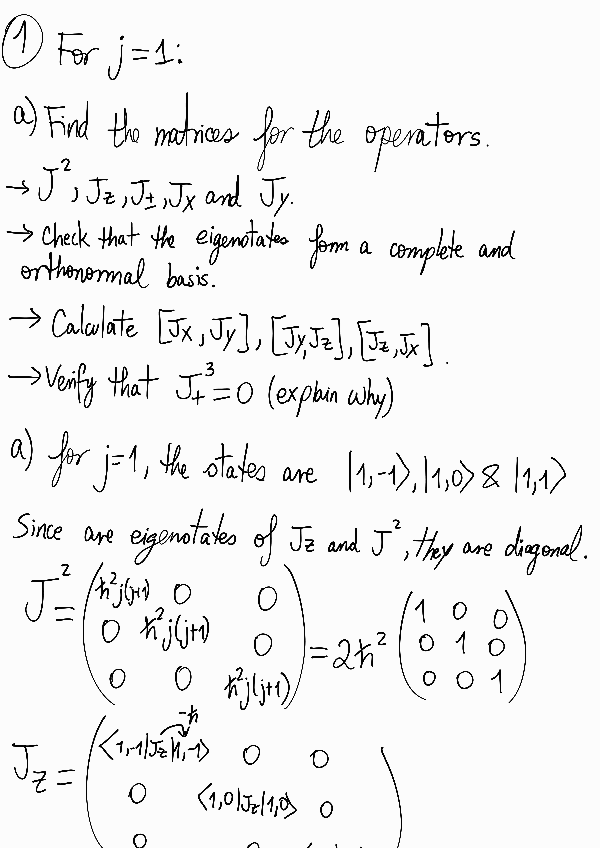 ① For j=1:
a) Find the matrices for the operators.
→ J², Jz, J±, Jx and Jy.
→ Check that the eigenstates form a complete and
orthonormal basis.
→ Calculate [Jx, Jy], [Jy, Jz], [Jz, Jx].
→ Verify that J₊³ = 0 (explain why)
a) for j=1, the states are |1,-1⟩, |1,0⟩ & |1,1⟩
Since are eigenstates of Jz and J², they are diagonal.
J² = ( ħ²j(j+1) 0 0 ; 0 ħ²j(j+1) 0 ; 0 0 ħ²j(j+1) ) = 2ħ² ( 1 0 0 ; 0 1 0 ; 0 0 1 )
-ħ
Jz = ( ⟨1,-1|Jz|1,-1⟩ 0 0
0 ⟨1,0|Jz|1,0⟩ 0
0